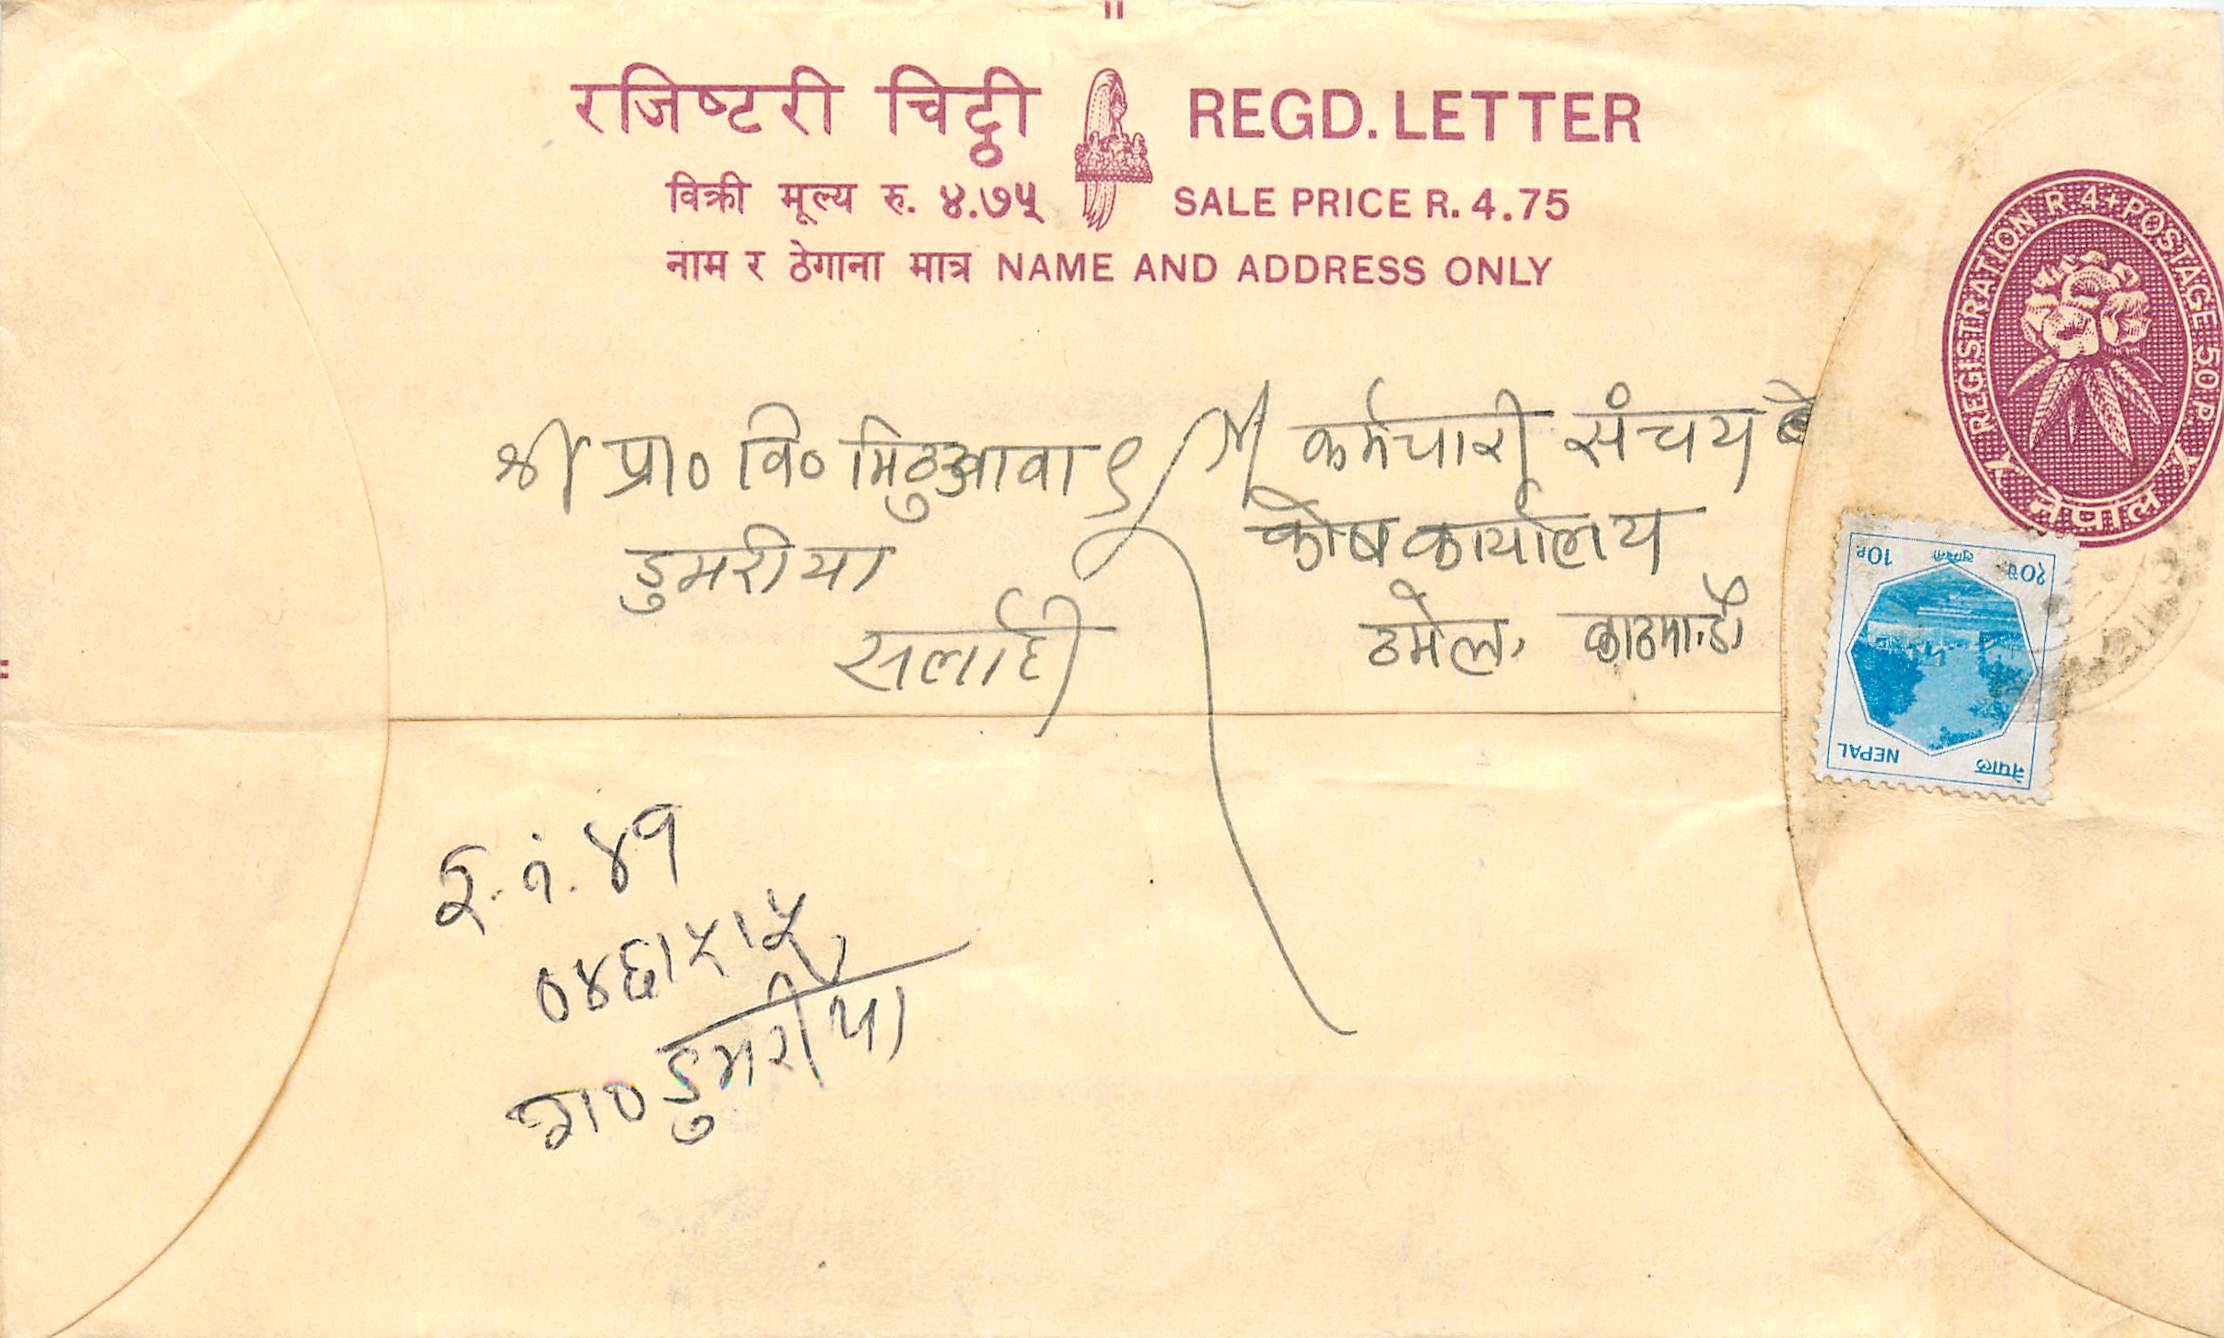 रजिष्टरी चिट्ठी REGD. LETTER
विक्री मूल्य रु. ४.७५ SALE PRICE R. 4.75
नाम र ठेगाना मात्र NAME AND ADDRESS ONLY
REGISTRATION R 4+POSTAGE 50 P.
नेपाल
श्री प्रा० वि० मिठुआवा
डुमरीया
सर्लाही
श्री कर्मचारी संचय
कोष कार्यालय
ठमेल, काठमाण्डौ
10P लुम्बिनी १०पै
NEPAL नेपाल
र. नं. ४१
०४६।५।५
डुमरीया